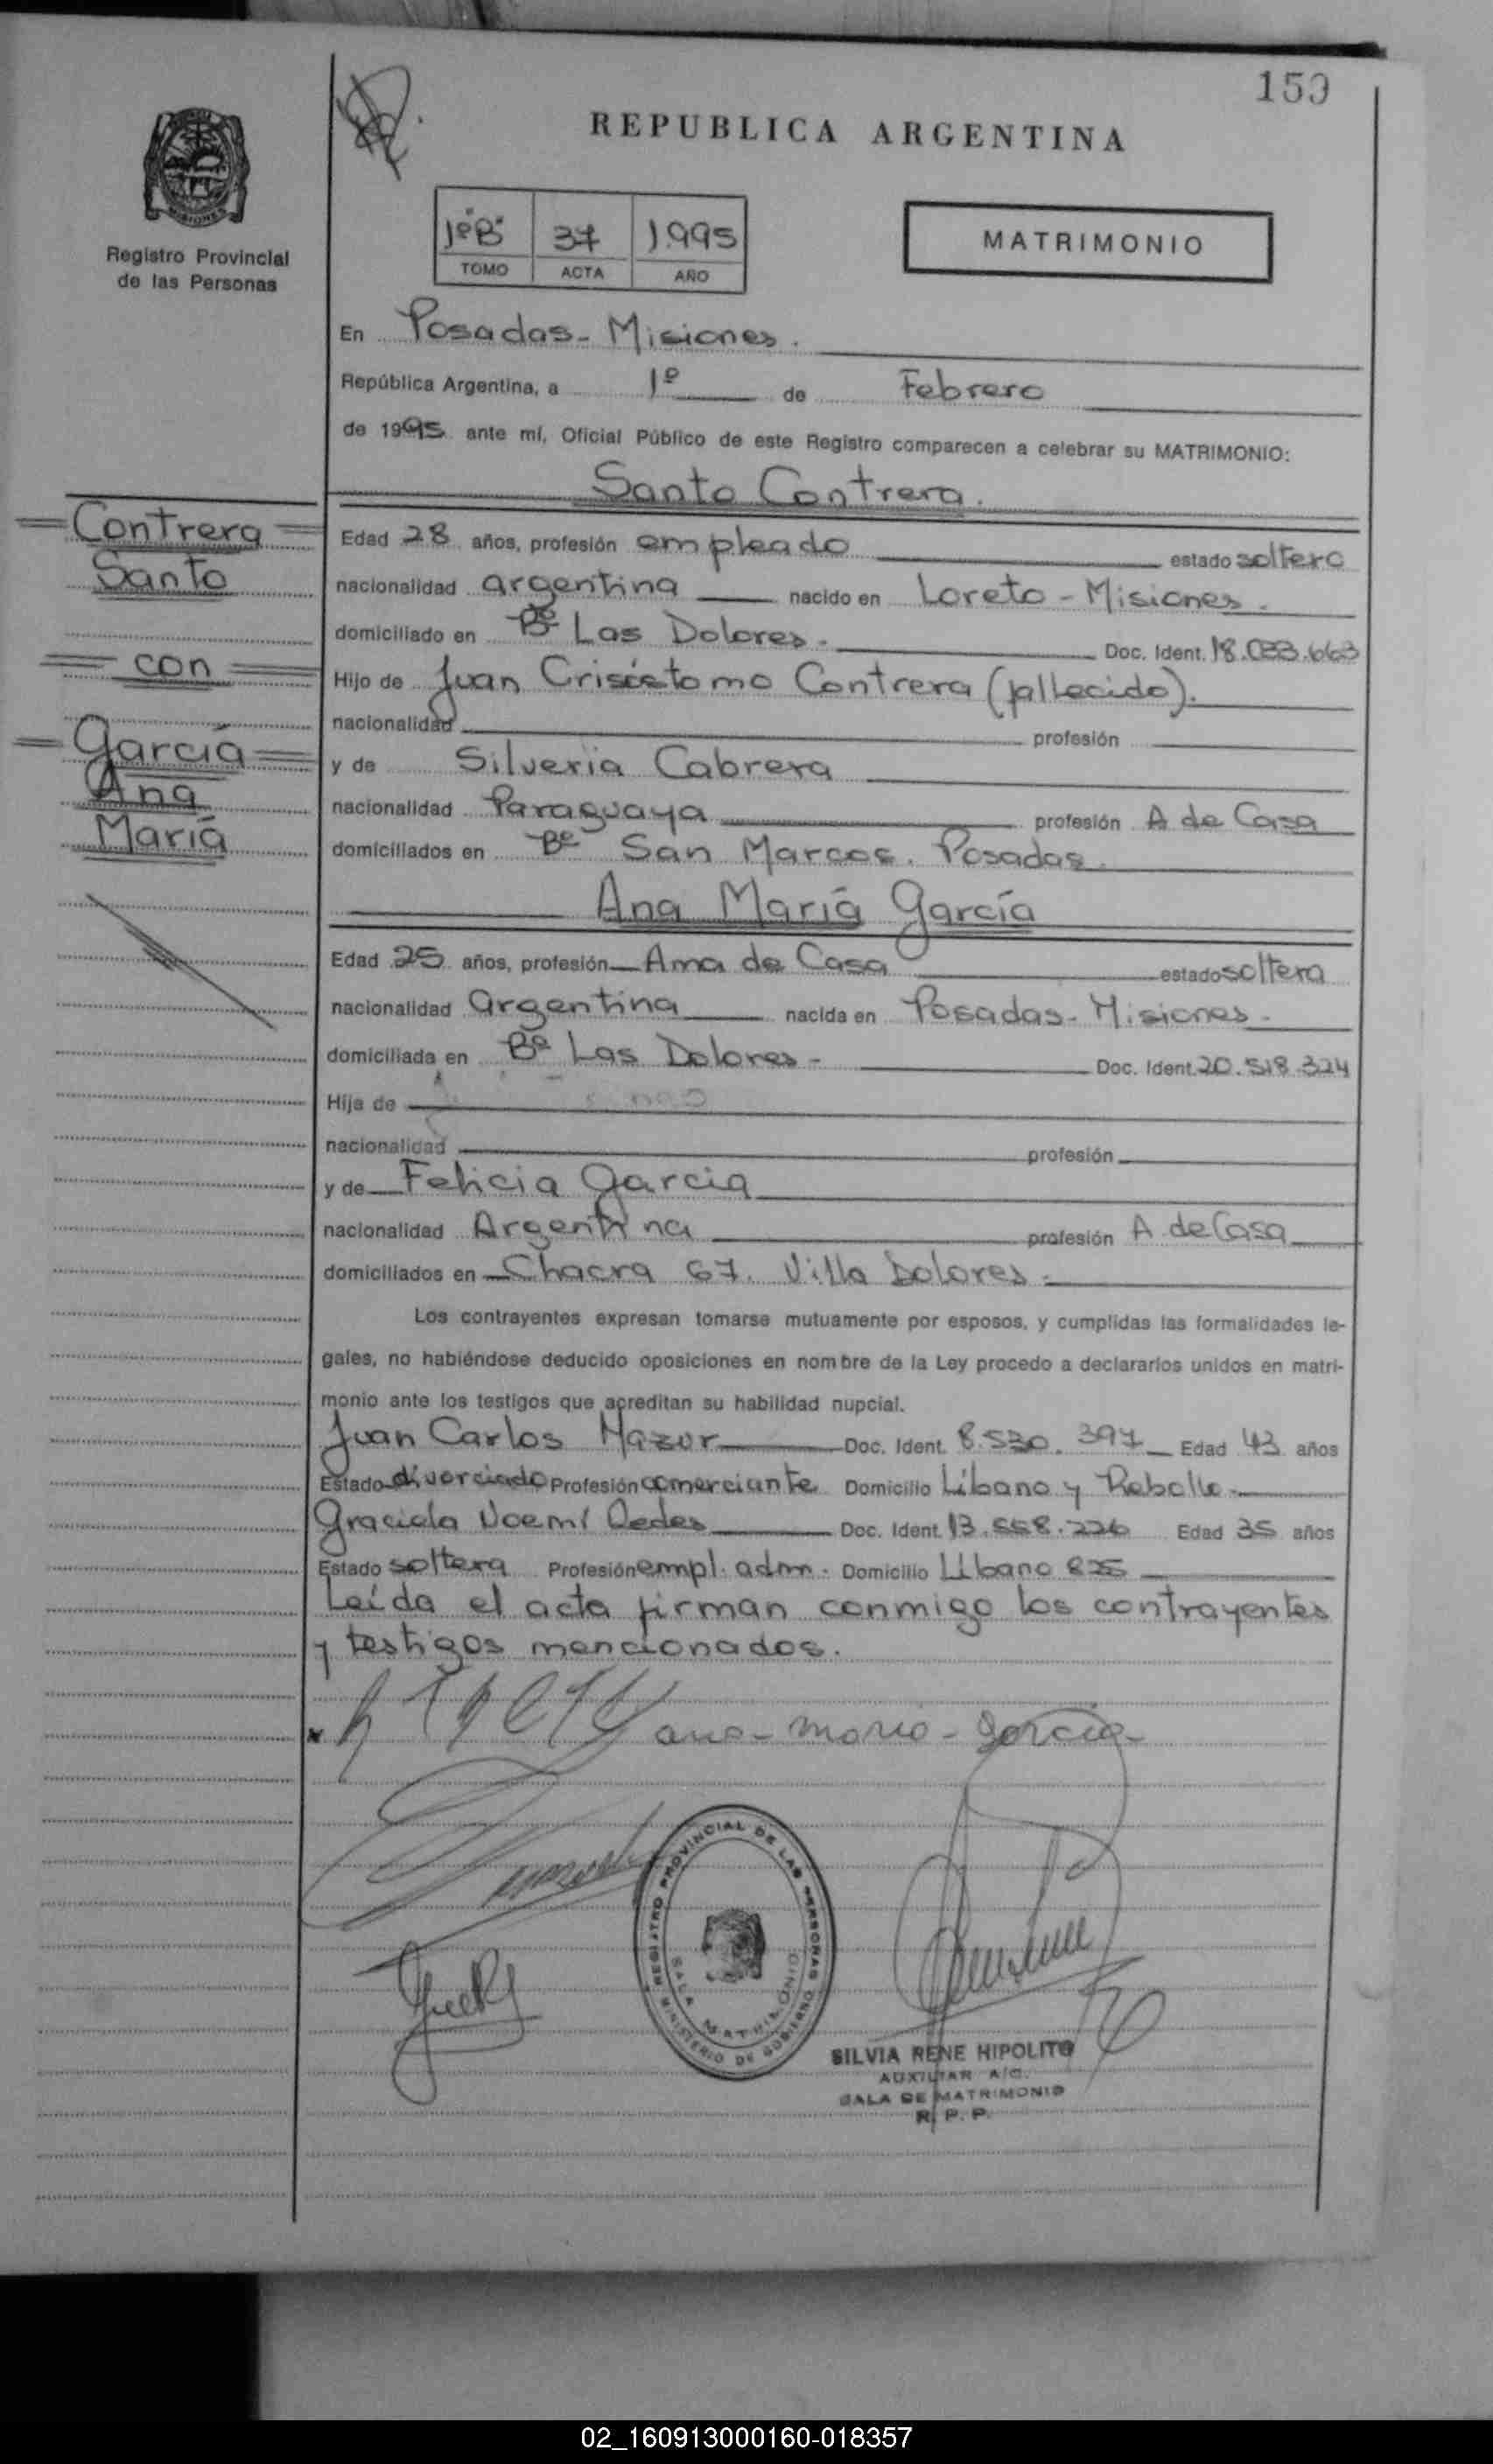 159
REPUBLICA ARGENTINA
MISIONES
Registro Provincial
de las Personas
1º"B" 37 1995
TOMO ACTA AÑO
MATRIMONIO
En Posadas - Misiones.
República Argentina, a 1º de Febrero
de 1995 ante mí, Oficial Público de este Registro comparecen a celebrar su MATRIMONIO:
Santo Contrera.
Contrera
Santo
con
García
Ana
María
Edad 28 años, profesión empleado estado soltero
nacionalidad argentina nacido en Loreto - Misiones.
domiciliado en Bº Las Dolores. Doc. Ident. 18.033.663
Hijo de Juan Crisóstomo Contrera (fallecido).
nacionalidad profesión
y de Silveria Cabrera
nacionalidad Paraguaya profesión A de Casa
domiciliados en Bº San Marcos. Posadas.
Ana María García
Edad 25 años, profesión Ama de Casa estado soltera
nacionalidad argentina nacida en Posadas - Misiones.
domiciliada en Bº Las Dolores - Doc. Ident. 20.518.324
Hija de
nacionalidad profesión
y de Felicia Garcia
nacionalidad Argentina profesión A. de Casa
domiciliados en Chacra 67. Villa Dolores.
Los contrayentes expresan tomarse mutuamente por esposos, y cumplidas las formalidades le-
gales, no habiéndose deducido oposiciones en nombre de la Ley procedo a declararlos unidos en matri-
monio ante los testigos que acreditan su habilidad nupcial.
Juan Carlos Mazur Doc. Ident. 8.530.397 Edad 43 años
Estado divorciado Profesión comerciante Domicilio Líbano y Rebollo.
Graciela Noemí Dedes Doc. Ident. 13.558.226 Edad 35 años
Estado soltera Profesión empl. adm. Domicilio Líbano 825
Leída el acta firman conmigo los contrayentes
y testigos mencionados.
ana - maria - Garcia
REGISTRO PROVINCIAL DE LAS PERSONAS
SALA MATRIMONIO
MINISTERIO DE GOBIERNO
SILVIA RENE HIPOLITO
AUXILIAR A/C.
SALA DE MATRIMONIO
R. P. P.
02_160913000160-018357